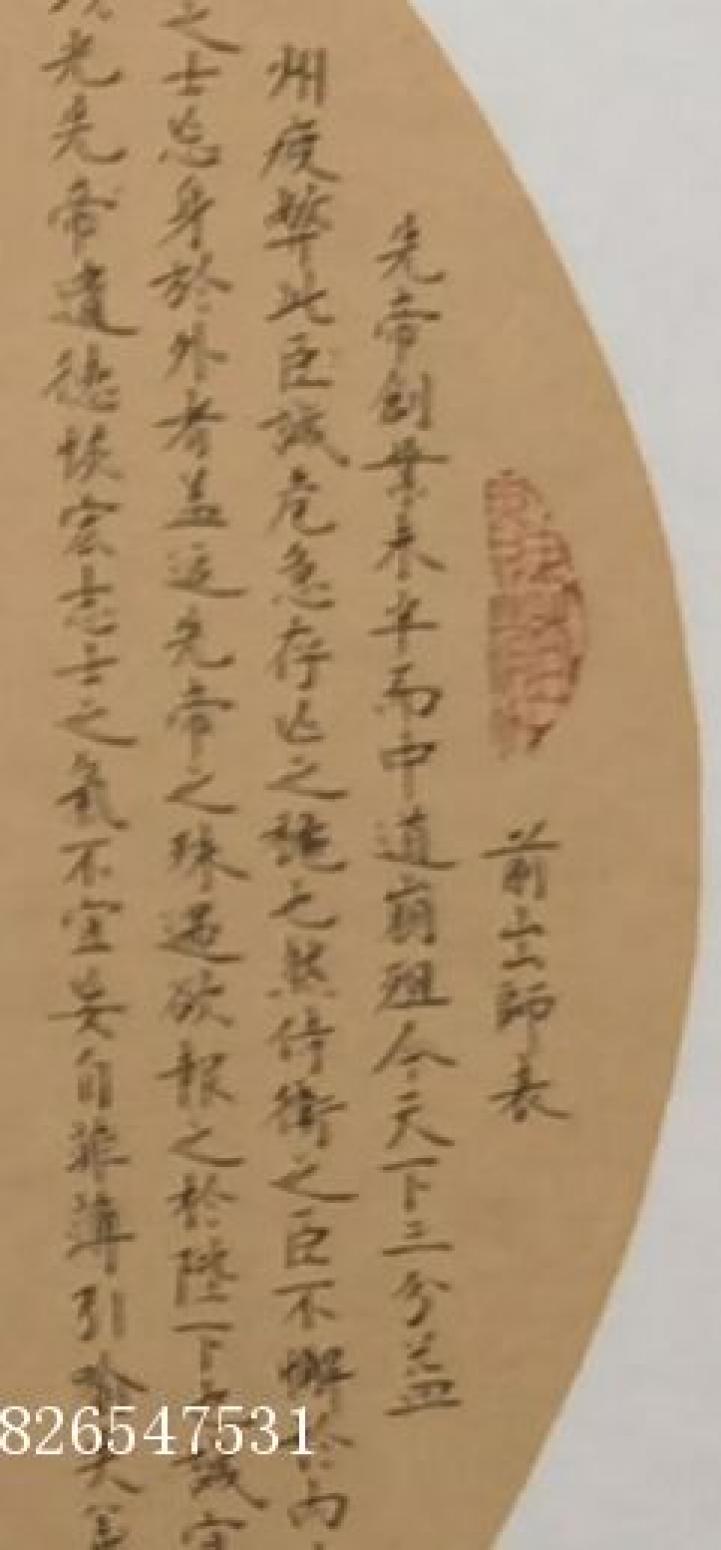 前出師表
先帝創業未半而中道崩殂今天下三分益
州疲弊此臣誠危急存亡之穐也然侍衛之臣不懈於内
之士忘身於外者蓋追先帝之殊遇欲報之於陛下也誠宜
光先帝遺德恢宏志士之氣不宜妄自菲薄引喻失義
826547531